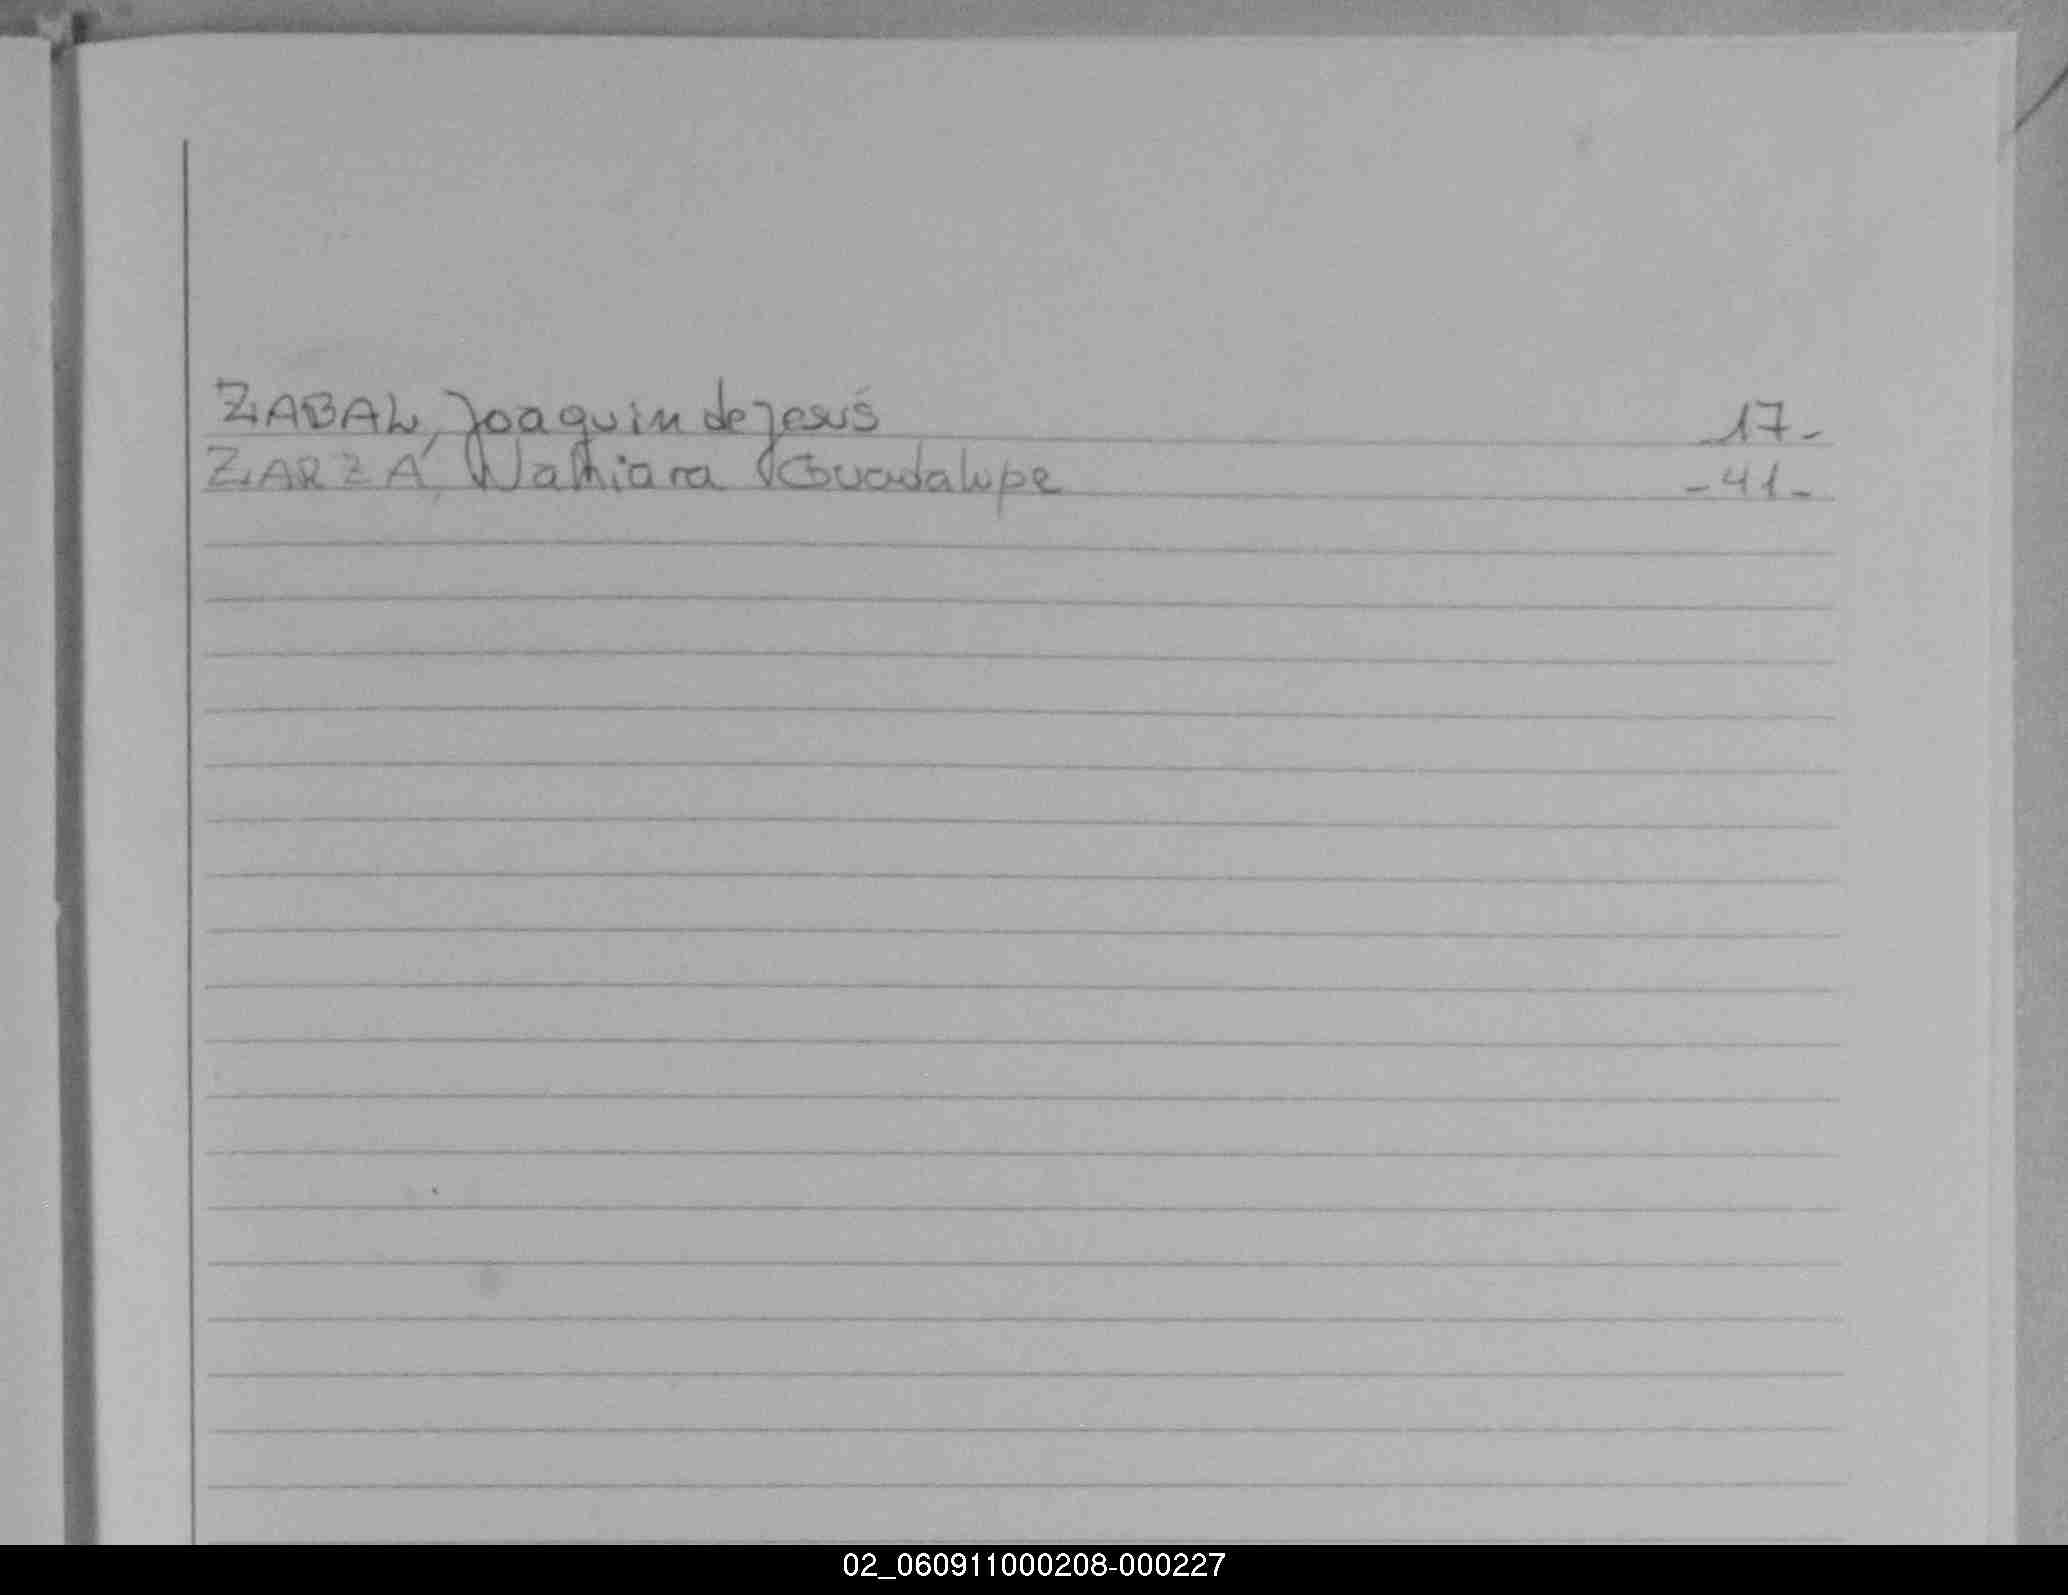 ZABAL, Joaquin de Jesús 17-
ZARZA, Namiara Guadalupe -41-
02_060911000208-000227